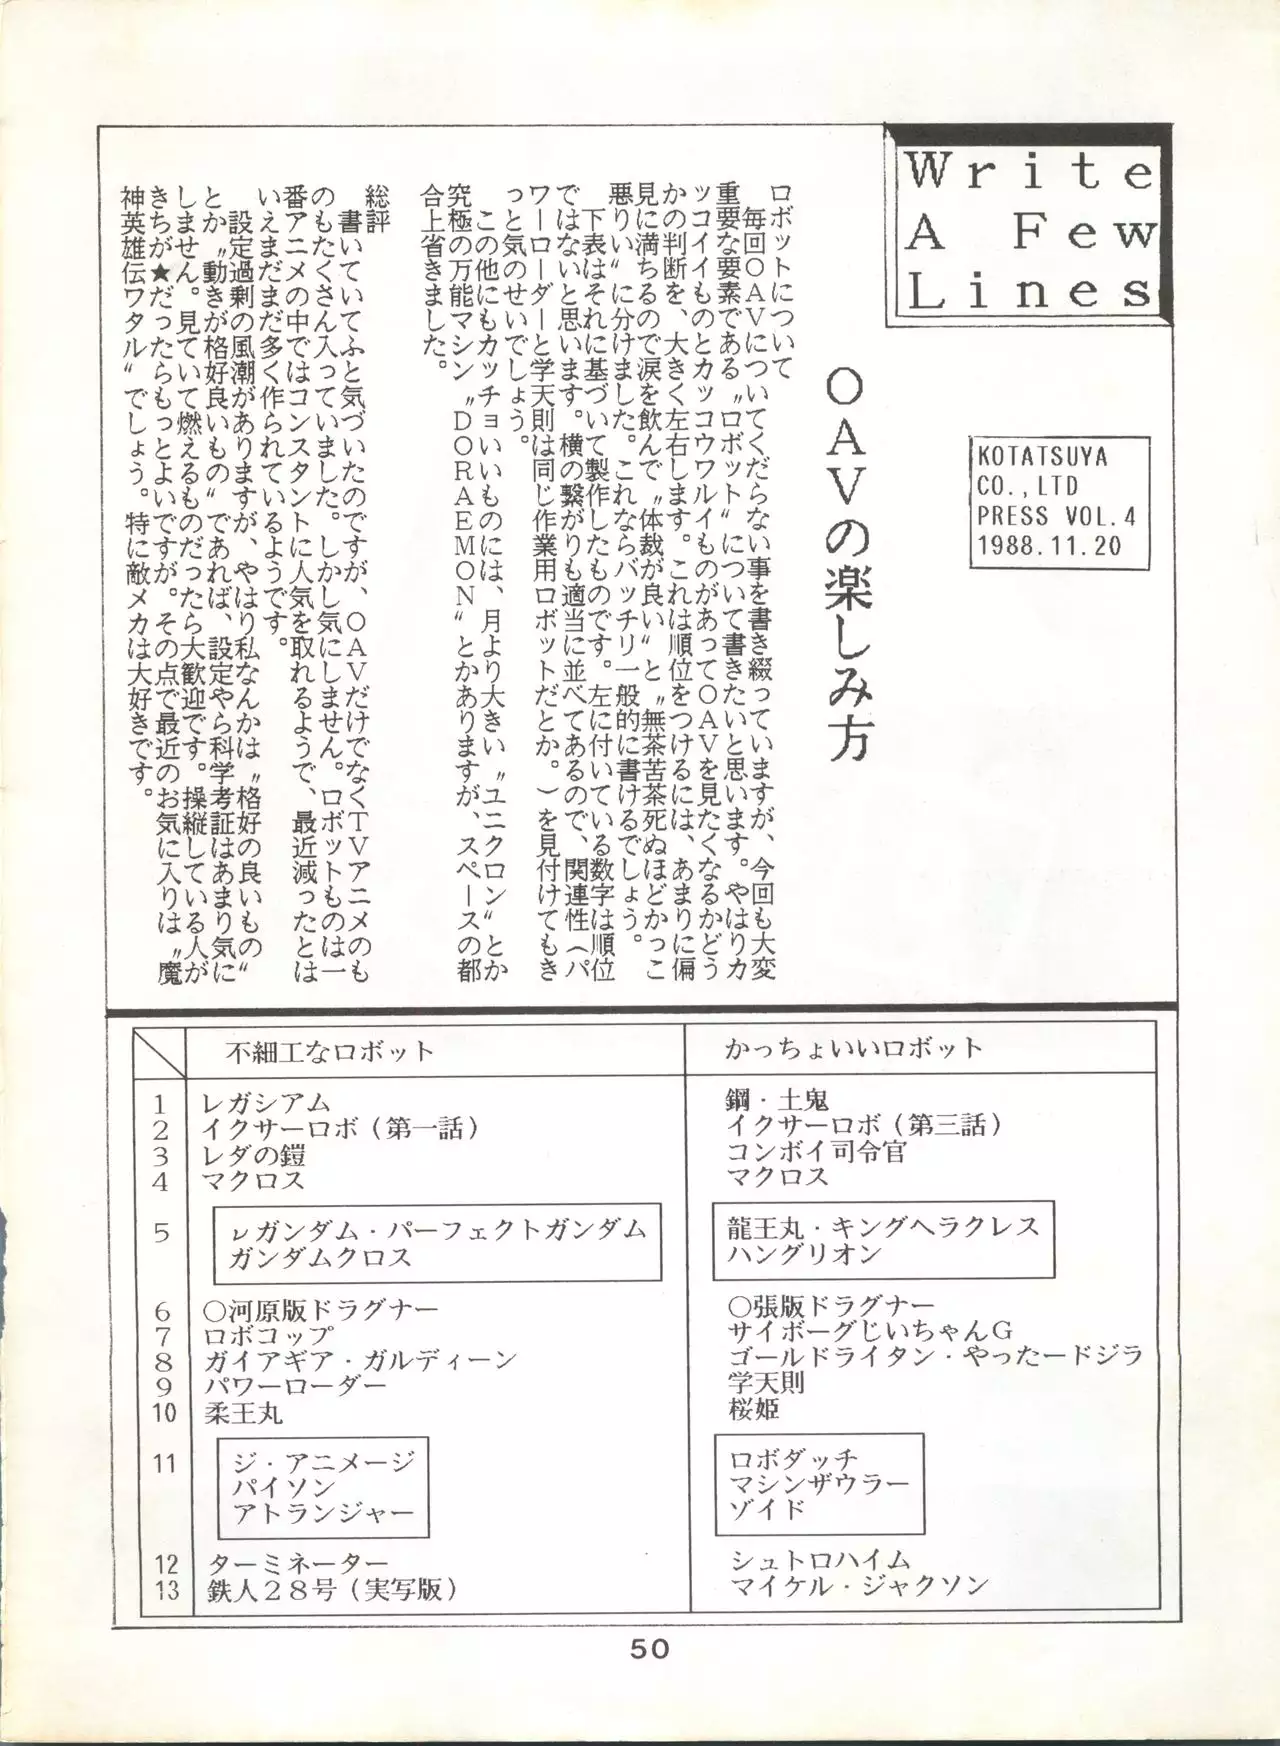 Write
A Few
Lines
KOTATSUYA
CO.,LTD
PRESS VOL.4
1988.11.20
OAVの楽しみ方
ロボットについて
毎回OAVについてくだらない事を書き綴っていますが、今回も大変
重要な要素である〝ロボット〟について書きたいと思います。やはりカ
ッコイイものとカッコウワルイものがあってOAVを見たくなるかどう
かの判断を、大きく左右します。これは順位をつけるには、あまりに偏
見に満ちるので涙を飲んで〝体裁が良い〟と〝無茶苦茶死ぬほどかっこ
悪りい〟に分けました。これならバッチリ一般的に書けるでしょう。
下表はそれに基づいて製作したものです。左に付いている数字は順位
ではないと思います。横の繋がりも適当に並べてあるので、関連性（パ
ワーローダーと学天則は同じ作業用ロボットだとか。）を見付けてもき
っと気のせいでしょう。
この他にもカッチョいいものには、月より大きい〝ユニクロン〟とか
究極の万能マシン〝DORAEMON〟とかありますが、スペースの都
合上省きました。
総評
書いていてふと気づいたのですが、OAVだけでなくTVアニメのも
のもたくさん入っていました。しかし気にしません。ロボットものは一
番アニメの中ではコンスタントに人気を取れるようで、最近減ったとは
いえまだまだ多く作られているようです。
設定過剰の風潮がありますが、やはり私なんかは〝格好の良いもの〟
とか〝動きが格好良いもの〟であれば、設定やら科学考証はあまり気に
しません。見ていて燃えるものだったら大歓迎です。操縦している人が
きちが★だったらもっとよいですが。その点で最近のお気に入りは〝魔
神英雄伝ワタル〟でしょう。特に敵メカは大好きです。
不細工なロボット　かっちょいいロボット
1　レガシアム　鋼・土鬼
2　イクサーロボ（第一話）　イクサーロボ（第三話）
3　レダの鎧　コンボイ司令官
4　マクロス　マクロス
5　νガンダム・パーフェクトガンダム　龍王丸・キングヘラクレス
ガンダムクロス　ハングリオン
6　○河原版ドラグナー　○張版ドラグナー
7　ロボコップ　サイボーグじいちゃんG
8　ガイアギア・ガルディーン　ゴールドライタン・やったードジラ
9　パワーローダー　学天則
10　柔王丸　桜姫
11　ジ・アニメージ　ロボダッチ
パイソン　マシンザウラー
アトランジャー　ゾイド
12　ターミネーター　シュトロハイム
13　鉄人28号（実写版）　マイケル・ジャクソン
50